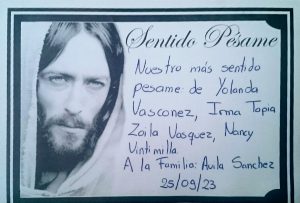 Sentido Pésame
Nuestro más sentido
pesame de Yolanda
Vasconez, Irma Tapia
Zoila Vasquez, Nancy
Vintimilla
A la Familia: Avila Sanchez
25/09/23